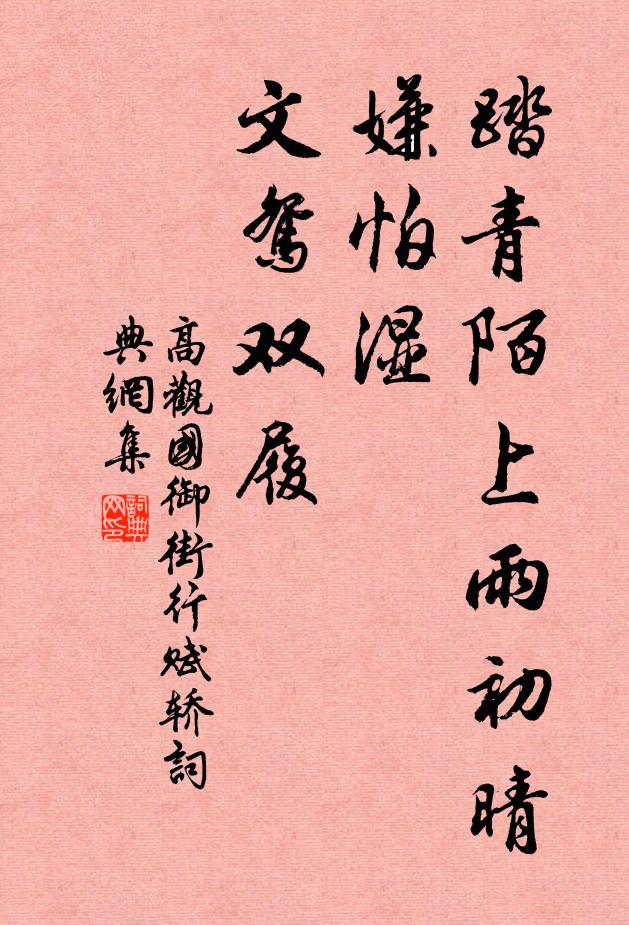 踏青陌上雨初晴
嫌怕湿
文鸳双履
高觀國御街行赋轿詞
典網集
詞典网印